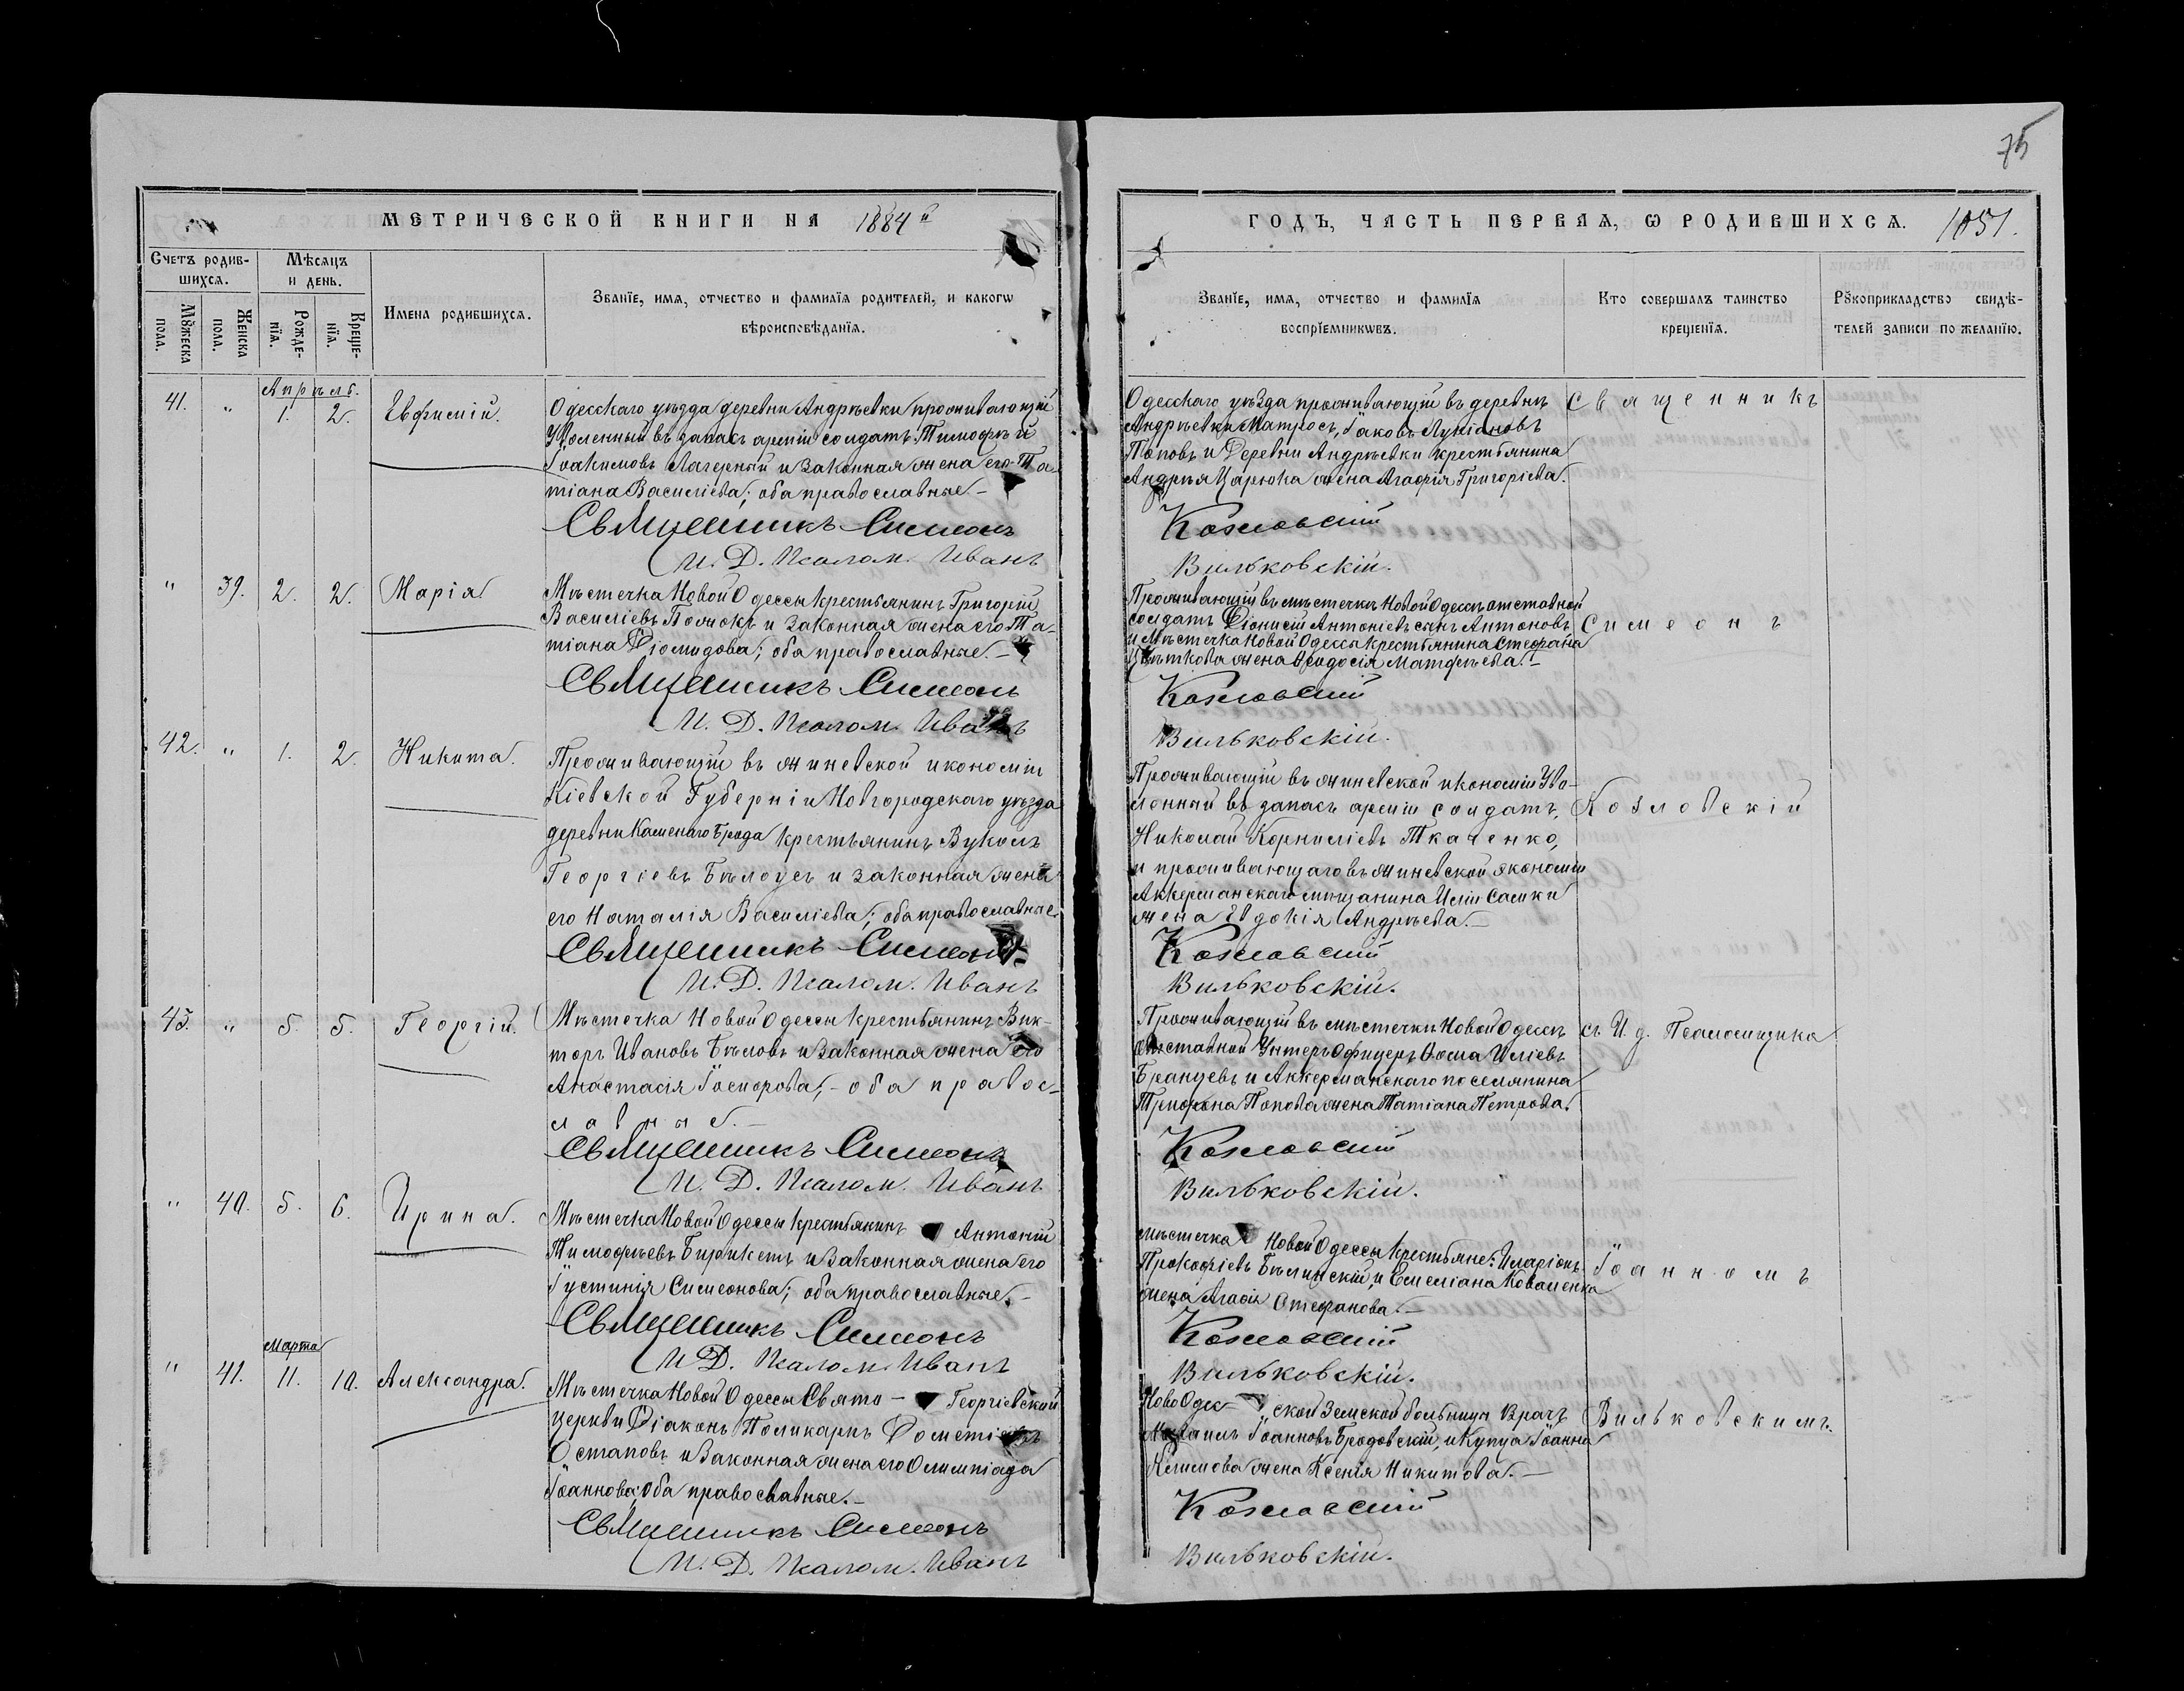 75
МЕТРИЧЕСКОЙ КНИГИ НА 1884й
ГОДЪ, ЧАСТЬ ПЕРВАЯ, Ѡ РОДИВШИХСѦ. 1051.
Счетъ родив-
шихсѧ.
Мѣсѧцъ
и день.
Мꙋжеска
пола.
Женска
пола.
Рожде-
нїѧ.
Крещє-
нїѧ.
Имена родившихсѧ.
Званїе, имѧ, отчество и фамилїѧ родителей, и какогѡ
вѣроисповѣданїѧ.
Званїе, имѧ, отчество и фамилїѧ
воспрїемникѡвъ.
Кто совершалъ таинство
крещенїѧ.
Рꙋкоприкладство свидѣ-
телей записи по желанїю.
Апрѣль.
41. " 1. 2. Евфимій.
Одесскаго уѣзда деревни Андрѣевки проживающій
Уволенный въ запасъ арміи солдатъ Тимофей
Іоакимовъ Лагерный и законная жена его Та-
тіана Василіева; оба православные.-
Священникъ Симеонъ
И. Д. Псалом. Иванъ
Одесскаго уѣзда проживающій въ деревнѣ
Андрѣевки Матросъ, Іаковъ Лукіановъ
Поповъ и Деревни Андрѣевки крестьянина
Андрея Царюка жена Агафія Григоріева.
Козловскій
Вильковскій.
Священникъ
" 39. 2. 2. Марія
Мѣстечка Новой Одессы крестьянинъ Григорій
Василіевъ и законная жена его Та-
тіана Діомидова; оба православные.-
Священникъ Симеонъ
И. Д. Псалом. Иванъ
Проживающій въ мѣстечкѣ Новой Одессѣ отставной
солдатъ Діонисій Антоніевъ сынъ Антоновъ
и Мѣстечка Новой Одессы крестьянина Стефана
Цвѣткова жена Ѳеодосія Матфѣева.-
Козловскій
Вильковскій.
Симеонъ
42. " 1. 2. Никита.
Проживающій въ жиневской икономіи
Кіевской Губерніи Новгородскаго уѣзда
деревни Каменаго Брода крестьянинъ Вуколъ
Георгіевъ Бѣлоусъ и законная жена
его Наталія Василіева; оба православные.
Священникъ Симеонъ
И. Д. Псалом. Иванъ
Проживающій въ жиневской икономіи Уво-
лонный въ запасъ арміи солдатъ,
Николай Корниліевъ Ткаченко,
и проживающаго въ жиневской экономіи
Аккерманскаго мѣщанина Иліи Самки
жена Евдокія Андрѣева.-
Козловскій
Вильковскій.
Козловскій
43. " 5. 5. Георгій.
Мѣстечка Новой Одессы крестьянинъ Вик-
торъ Ивановъ Бѣловъ и законная жена его
Анастасія; - оба правос-
лавные.-
Священникъ Симеонъ
И. Д. Псалом. Иванъ
Проживающій въ мѣстечкѣ Новой Одессѣ
отставной Унтеръ Офицеръ Ѳома Иліевъ
Бранцевъ и Аккерманскаго поселянина
Трифона Попова жена Татіана Петрова.
Козловскій
Вильковскій.
съ И. д. Псаломщика
" 40. 5. 6. Ирина.
Мѣстечка Новой Одессы крестьянинъ Антоній
Тимофѣевъ и законная жена его
Іустинія Симеонова; оба православные.-
Священникъ Симеонъ
И. Д. Псалом. Иванъ
мѣстечка Новой Одессы крестьяне: Иларіонъ
Прокофіевъ Бѣлинскій, и Емеліана Коваленка
жена Агафія Стефанова.-
Козловскій
Вильковскій.
Іоанномъ
Марта
" 41. 11. 10. Александра.
Мѣстечка Новой Одессы Свято- Георгіевской
церкви Діаконъ Поликарпъ Дометіевъ
Остаповъ и законная жена его Олимпіада
Іоаннова; Оба православные.-
Священникъ Симеонъ
И. Д. Псалом. Иванъ
НовоОдес- ской Земской больницы Врачъ
Михаилъ Іоанновъ Бродовскій, и Купца Іоанна
Климова жена Ксенія Никитова.-
Козловскій
Вильковскій.
Вильковскимъ.